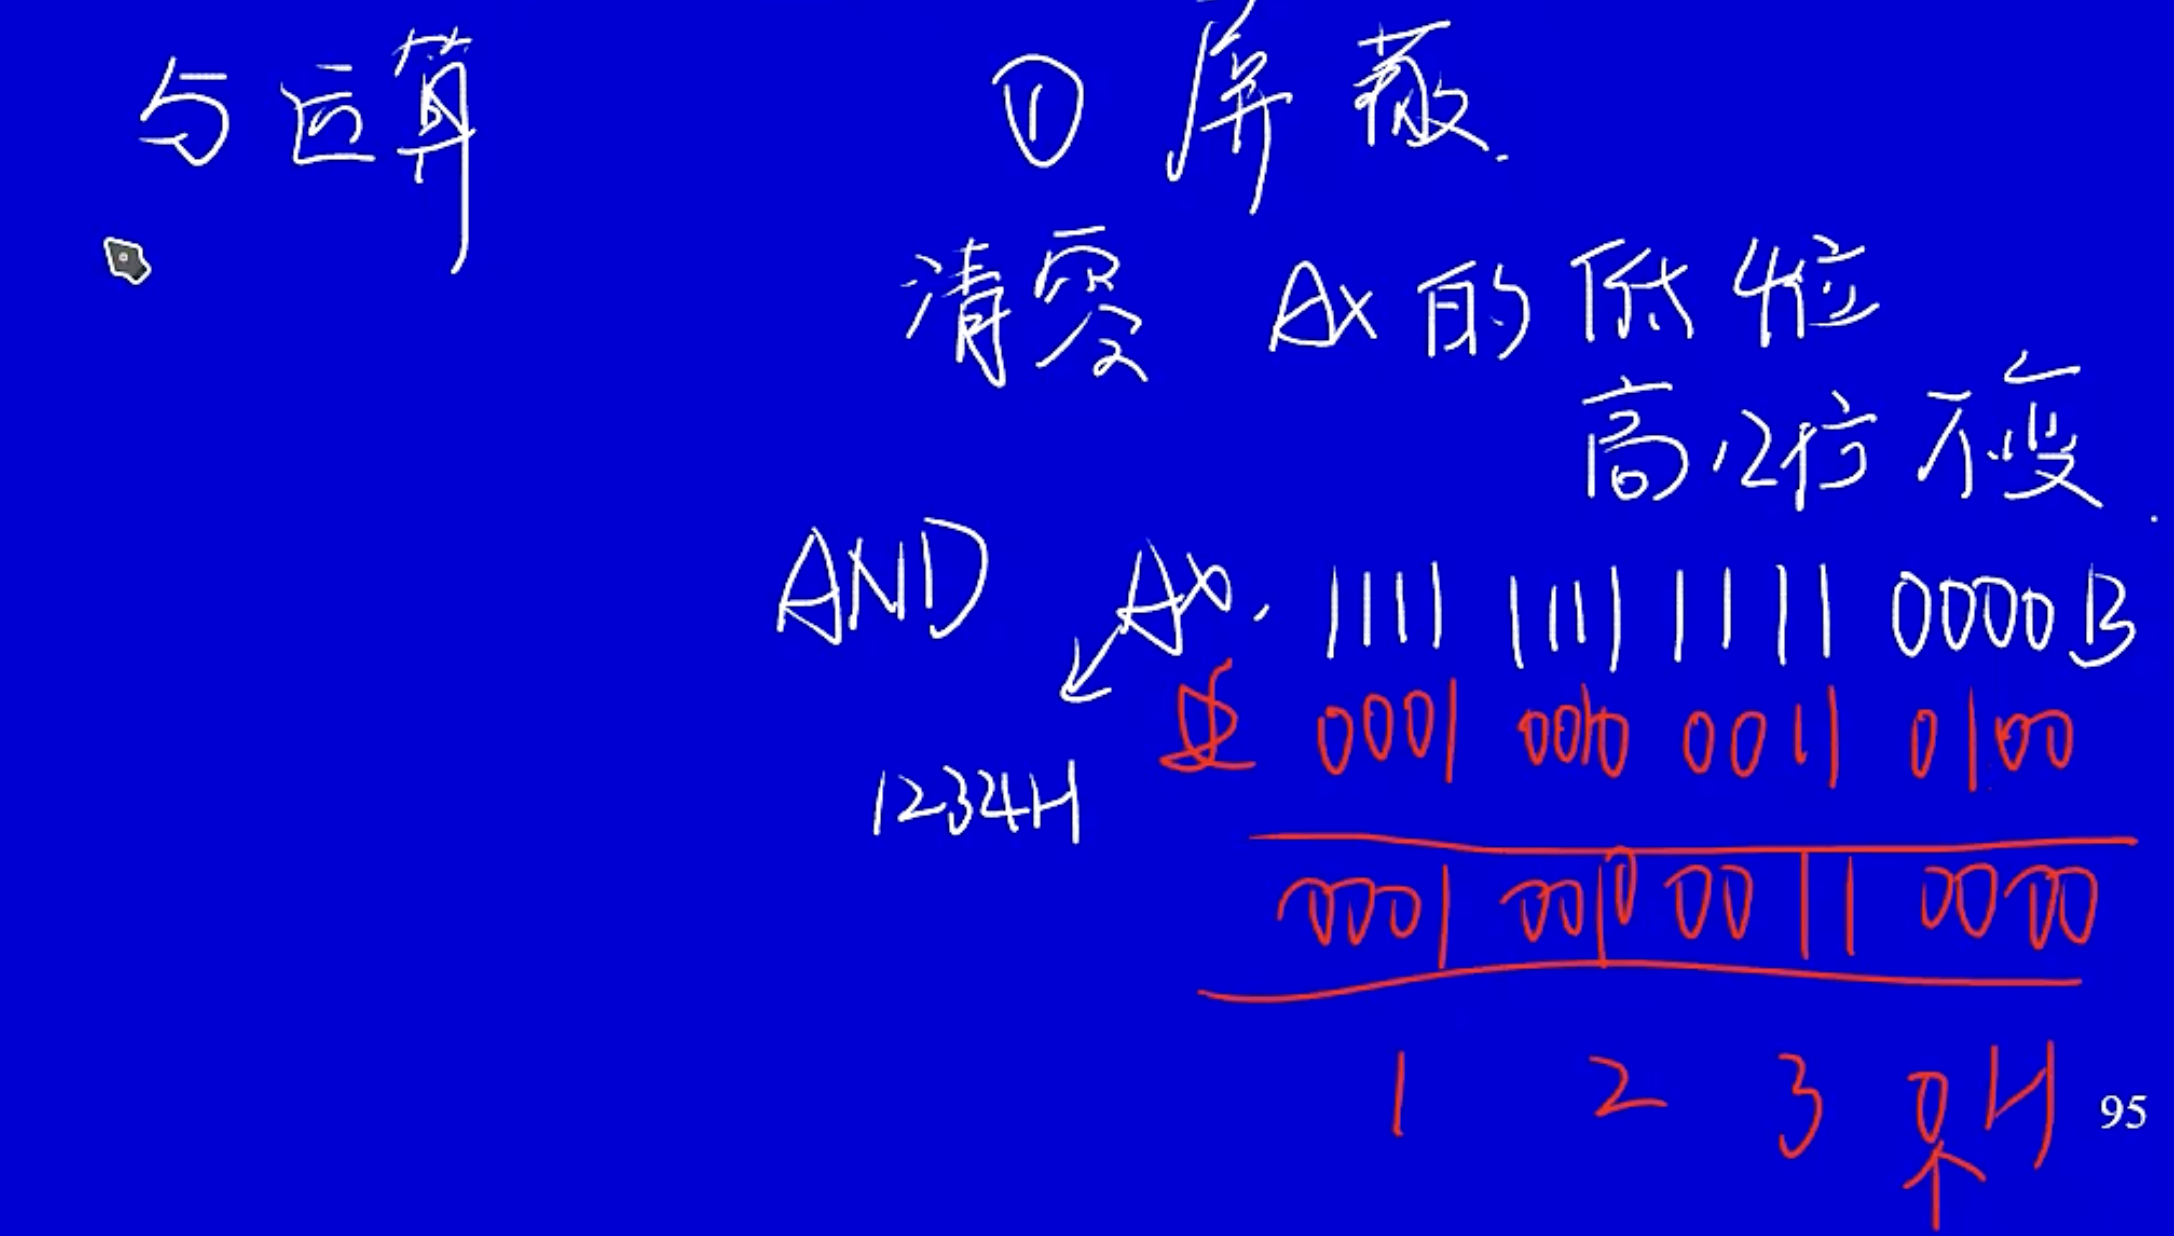 与运算 ① 屏蔽.
清零 AX的低4位
高12位不变.
AND AX, 1111 1111 1111 0000B
与 0001 0010 0011 0100
1234H
0001 0010 0011 0000
1 2 3 0H
95